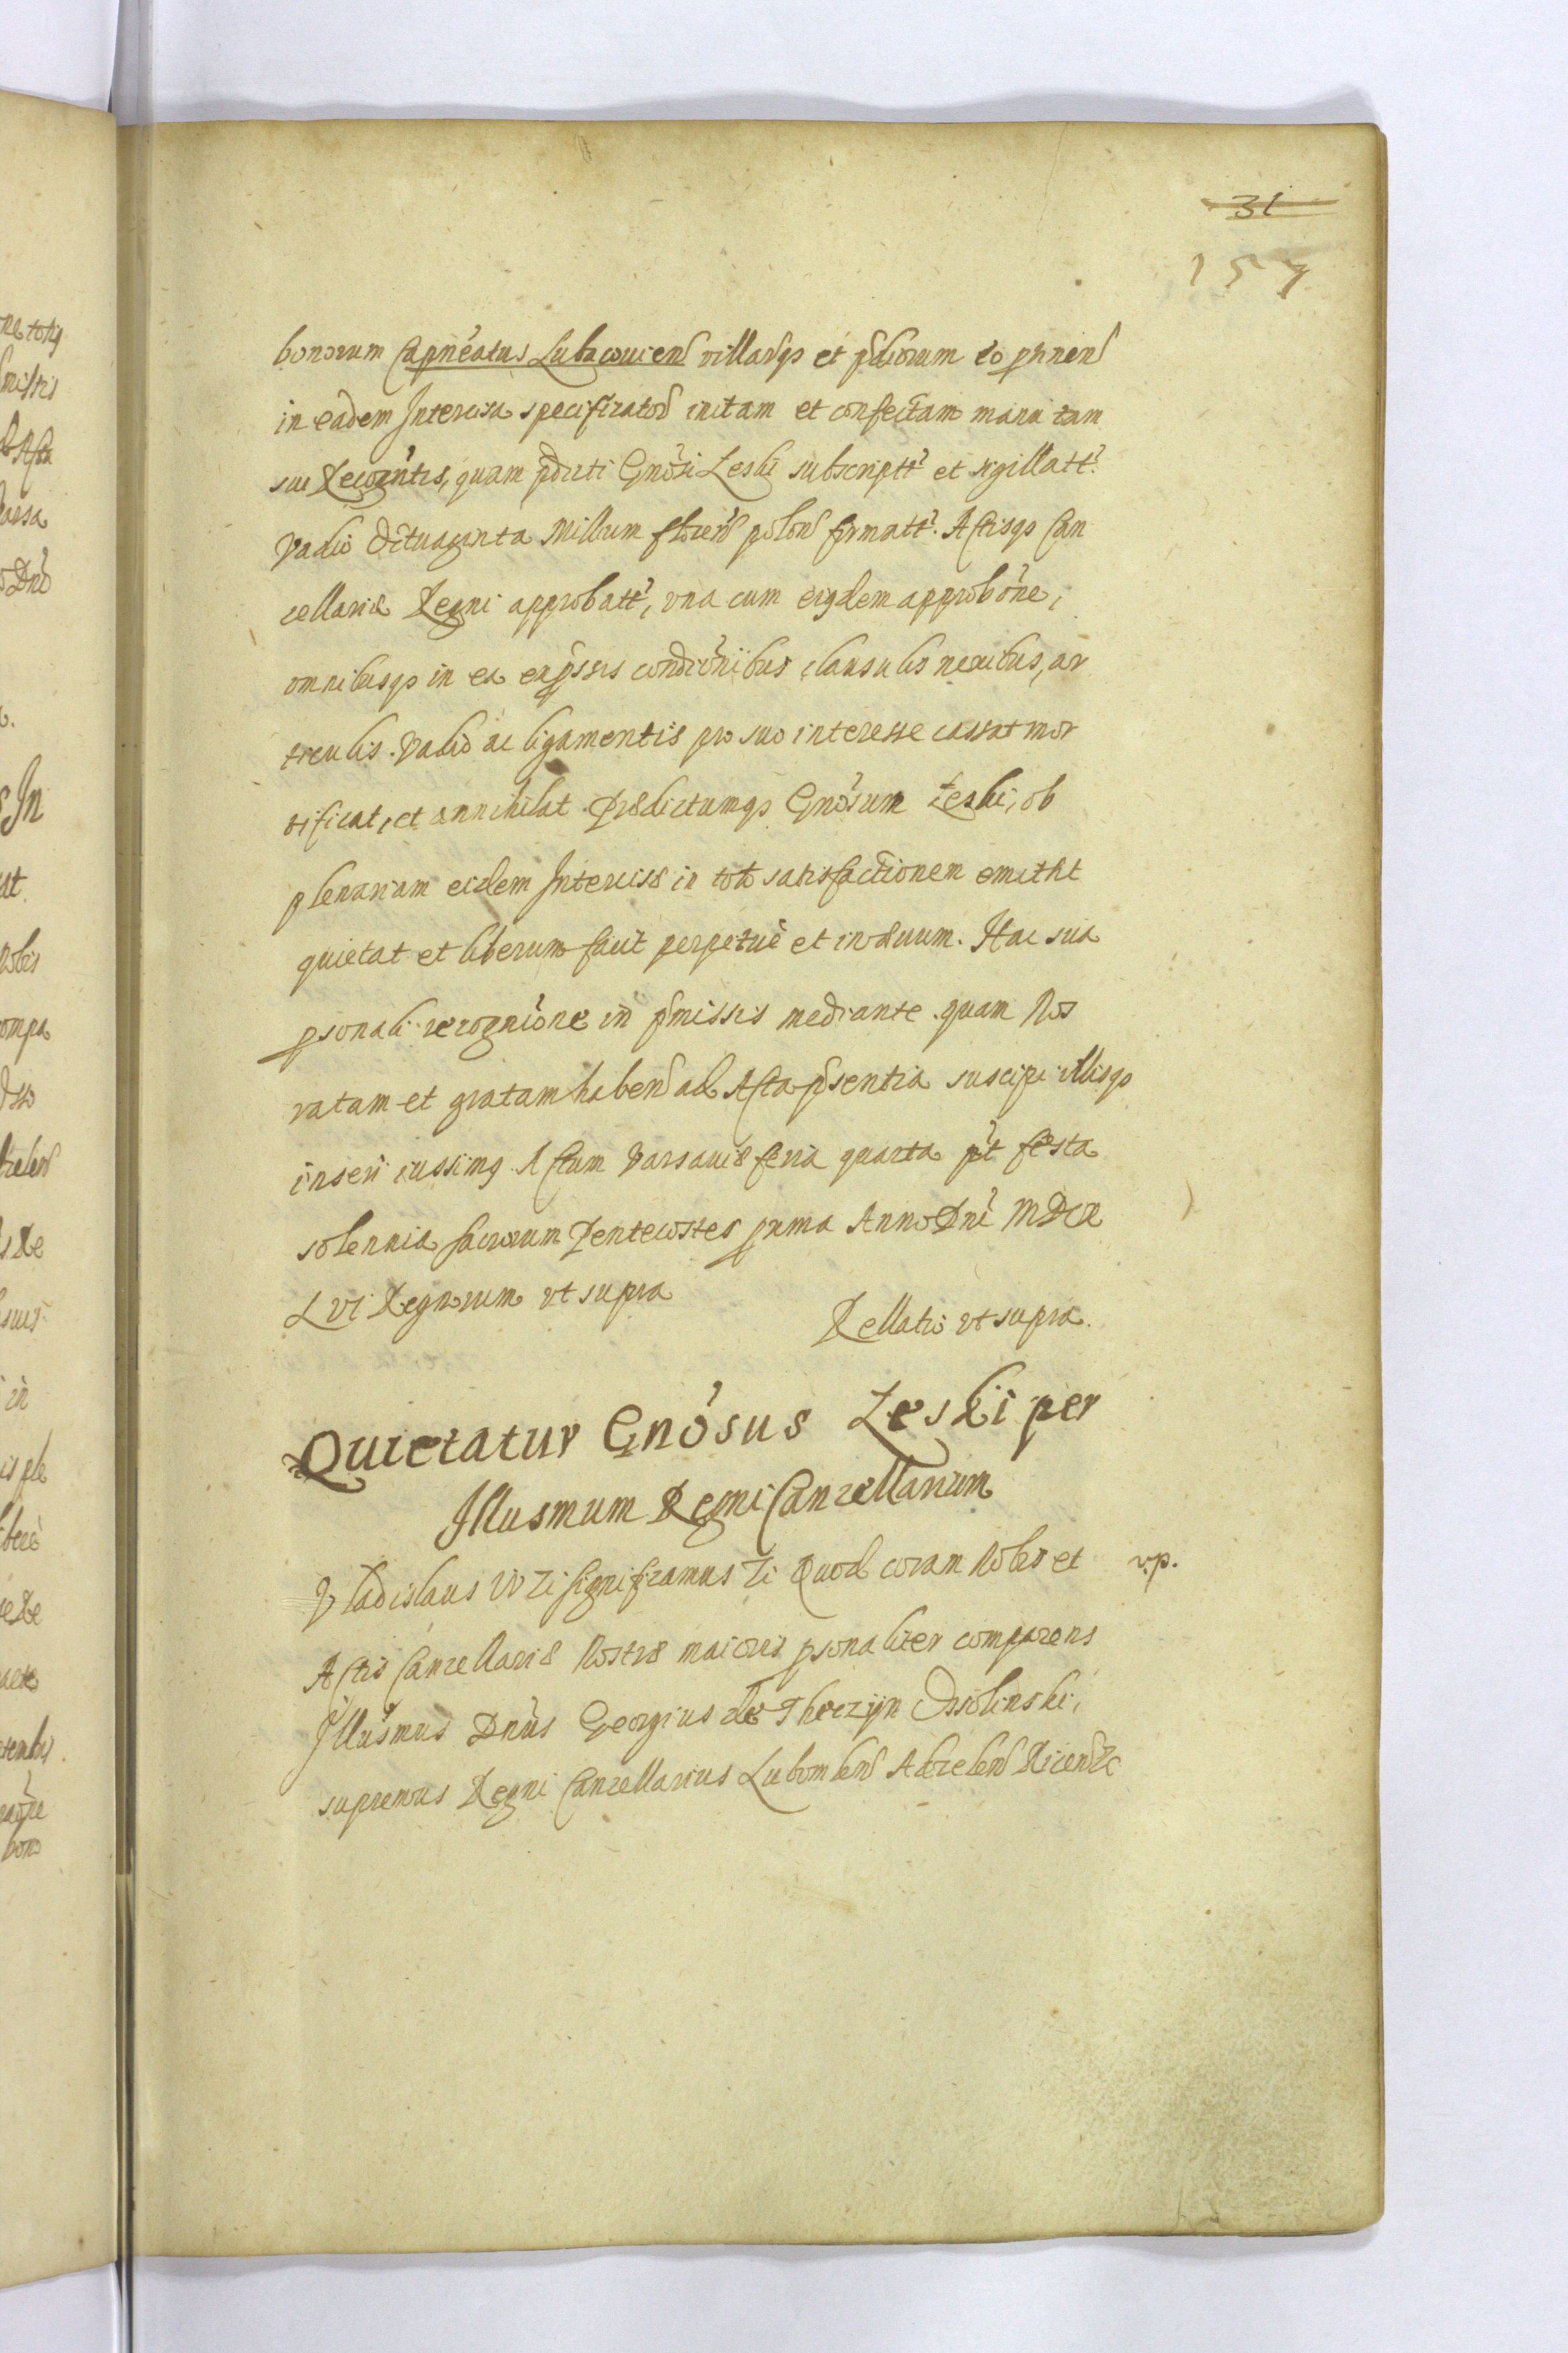 31
157
bonorum Capneatus Lubacouien villarqs et pdiorum eo ptinen
in eadem Intercisa specificator initam et confectam manu tam
sui Recogntis, quam pdicti Gnosi Leski subscriptt et sigillatt.
Vadio Octuaginta Millium floren polon firmatt. Actisqs Can
cellariæ Regni approbatt, vna cum eiqdem approbone,
omnibusqs in ea expssis condicionibus clausulis nexibus, ar
ticulis. Vadio ac ligamentis pro suo interesse cassat mor
tificat, et annihilat. Prædictumqs Gnosum Leski, ob
plenariam eidem Intercisæ in toto satisfactionem emittit
quietat et liberum facit perpetuè et in æuum. Hac sua
psonali recognione in pmissis mediante. quam Nos
ratam et gratam haben ad Acta psentia suscipi illisqs
inseri iussimq. Actum Varsauiæ feria quarta pt festa
solennia sacrorum Pentecostes prima Anno Dni MDCX
LVI Regnorum vt supra
Rellatio vt supra.
Quietatur Gnosus Leski per
Illusmum Regni Cancellarium
Vladislaus IV Zi significamus Zi Quod coram Nobis et
v.p.
Actis Cancellariæ Nostræ maioris psonaliter comparens
Illusmus Dnus Georgius de Theczijn Ossolinski,
supremus Regni Cancellarius Lubomlen Adzelen Ricen &c